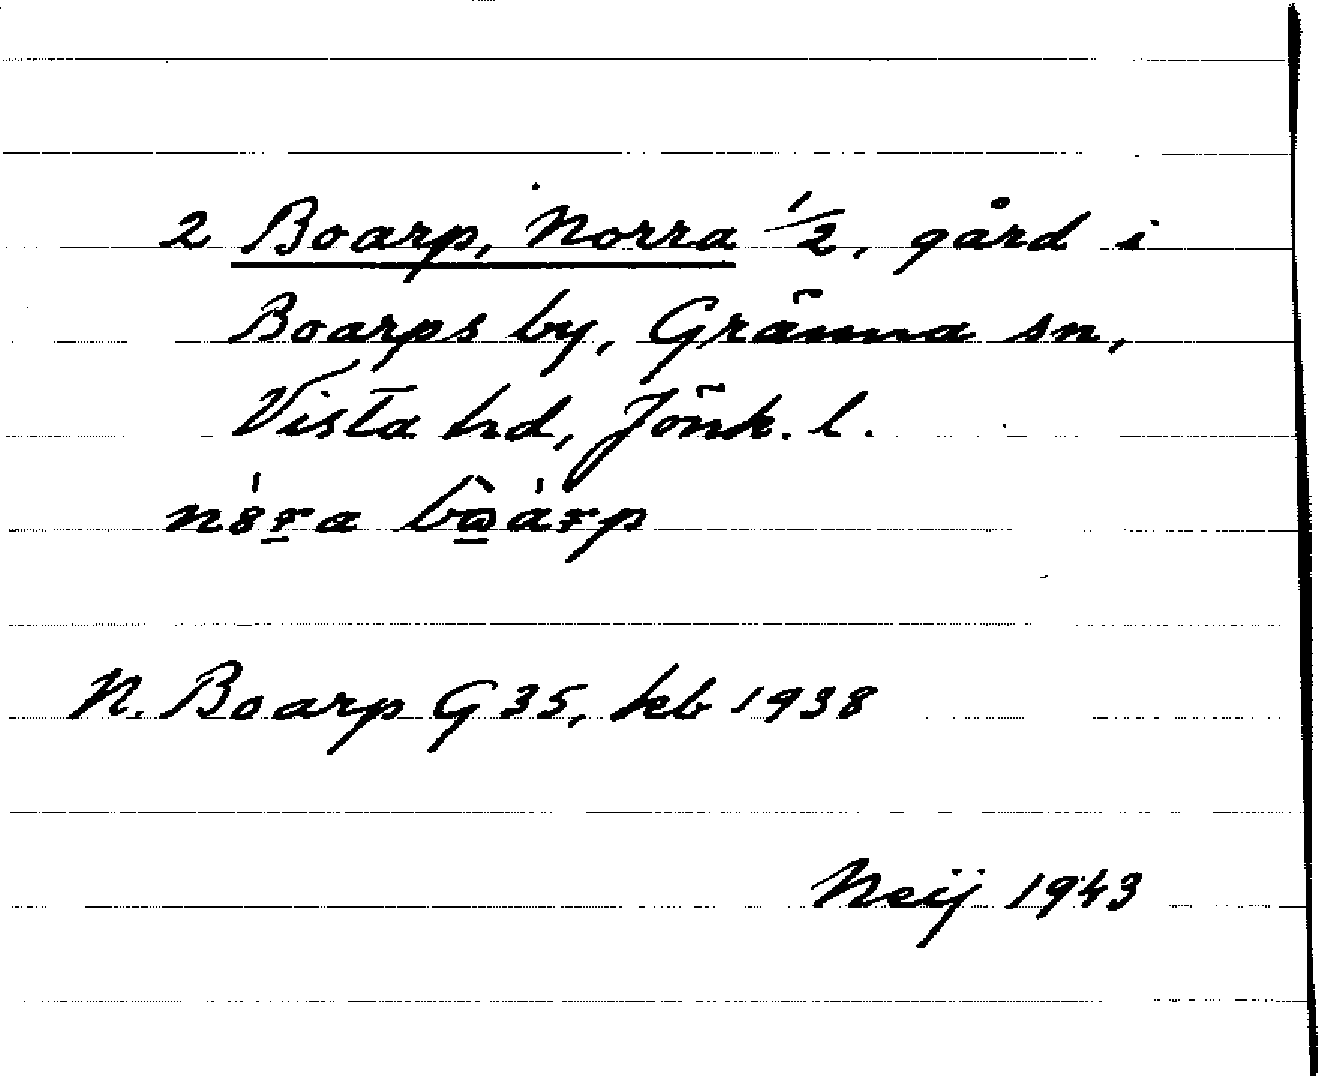 2 Boarp, Norra 1/2, gård i
Boarps by, Gränna sn,
Vista hd, Jönk. l.
N. Boarp G 35, keb 1938
Neij 1943